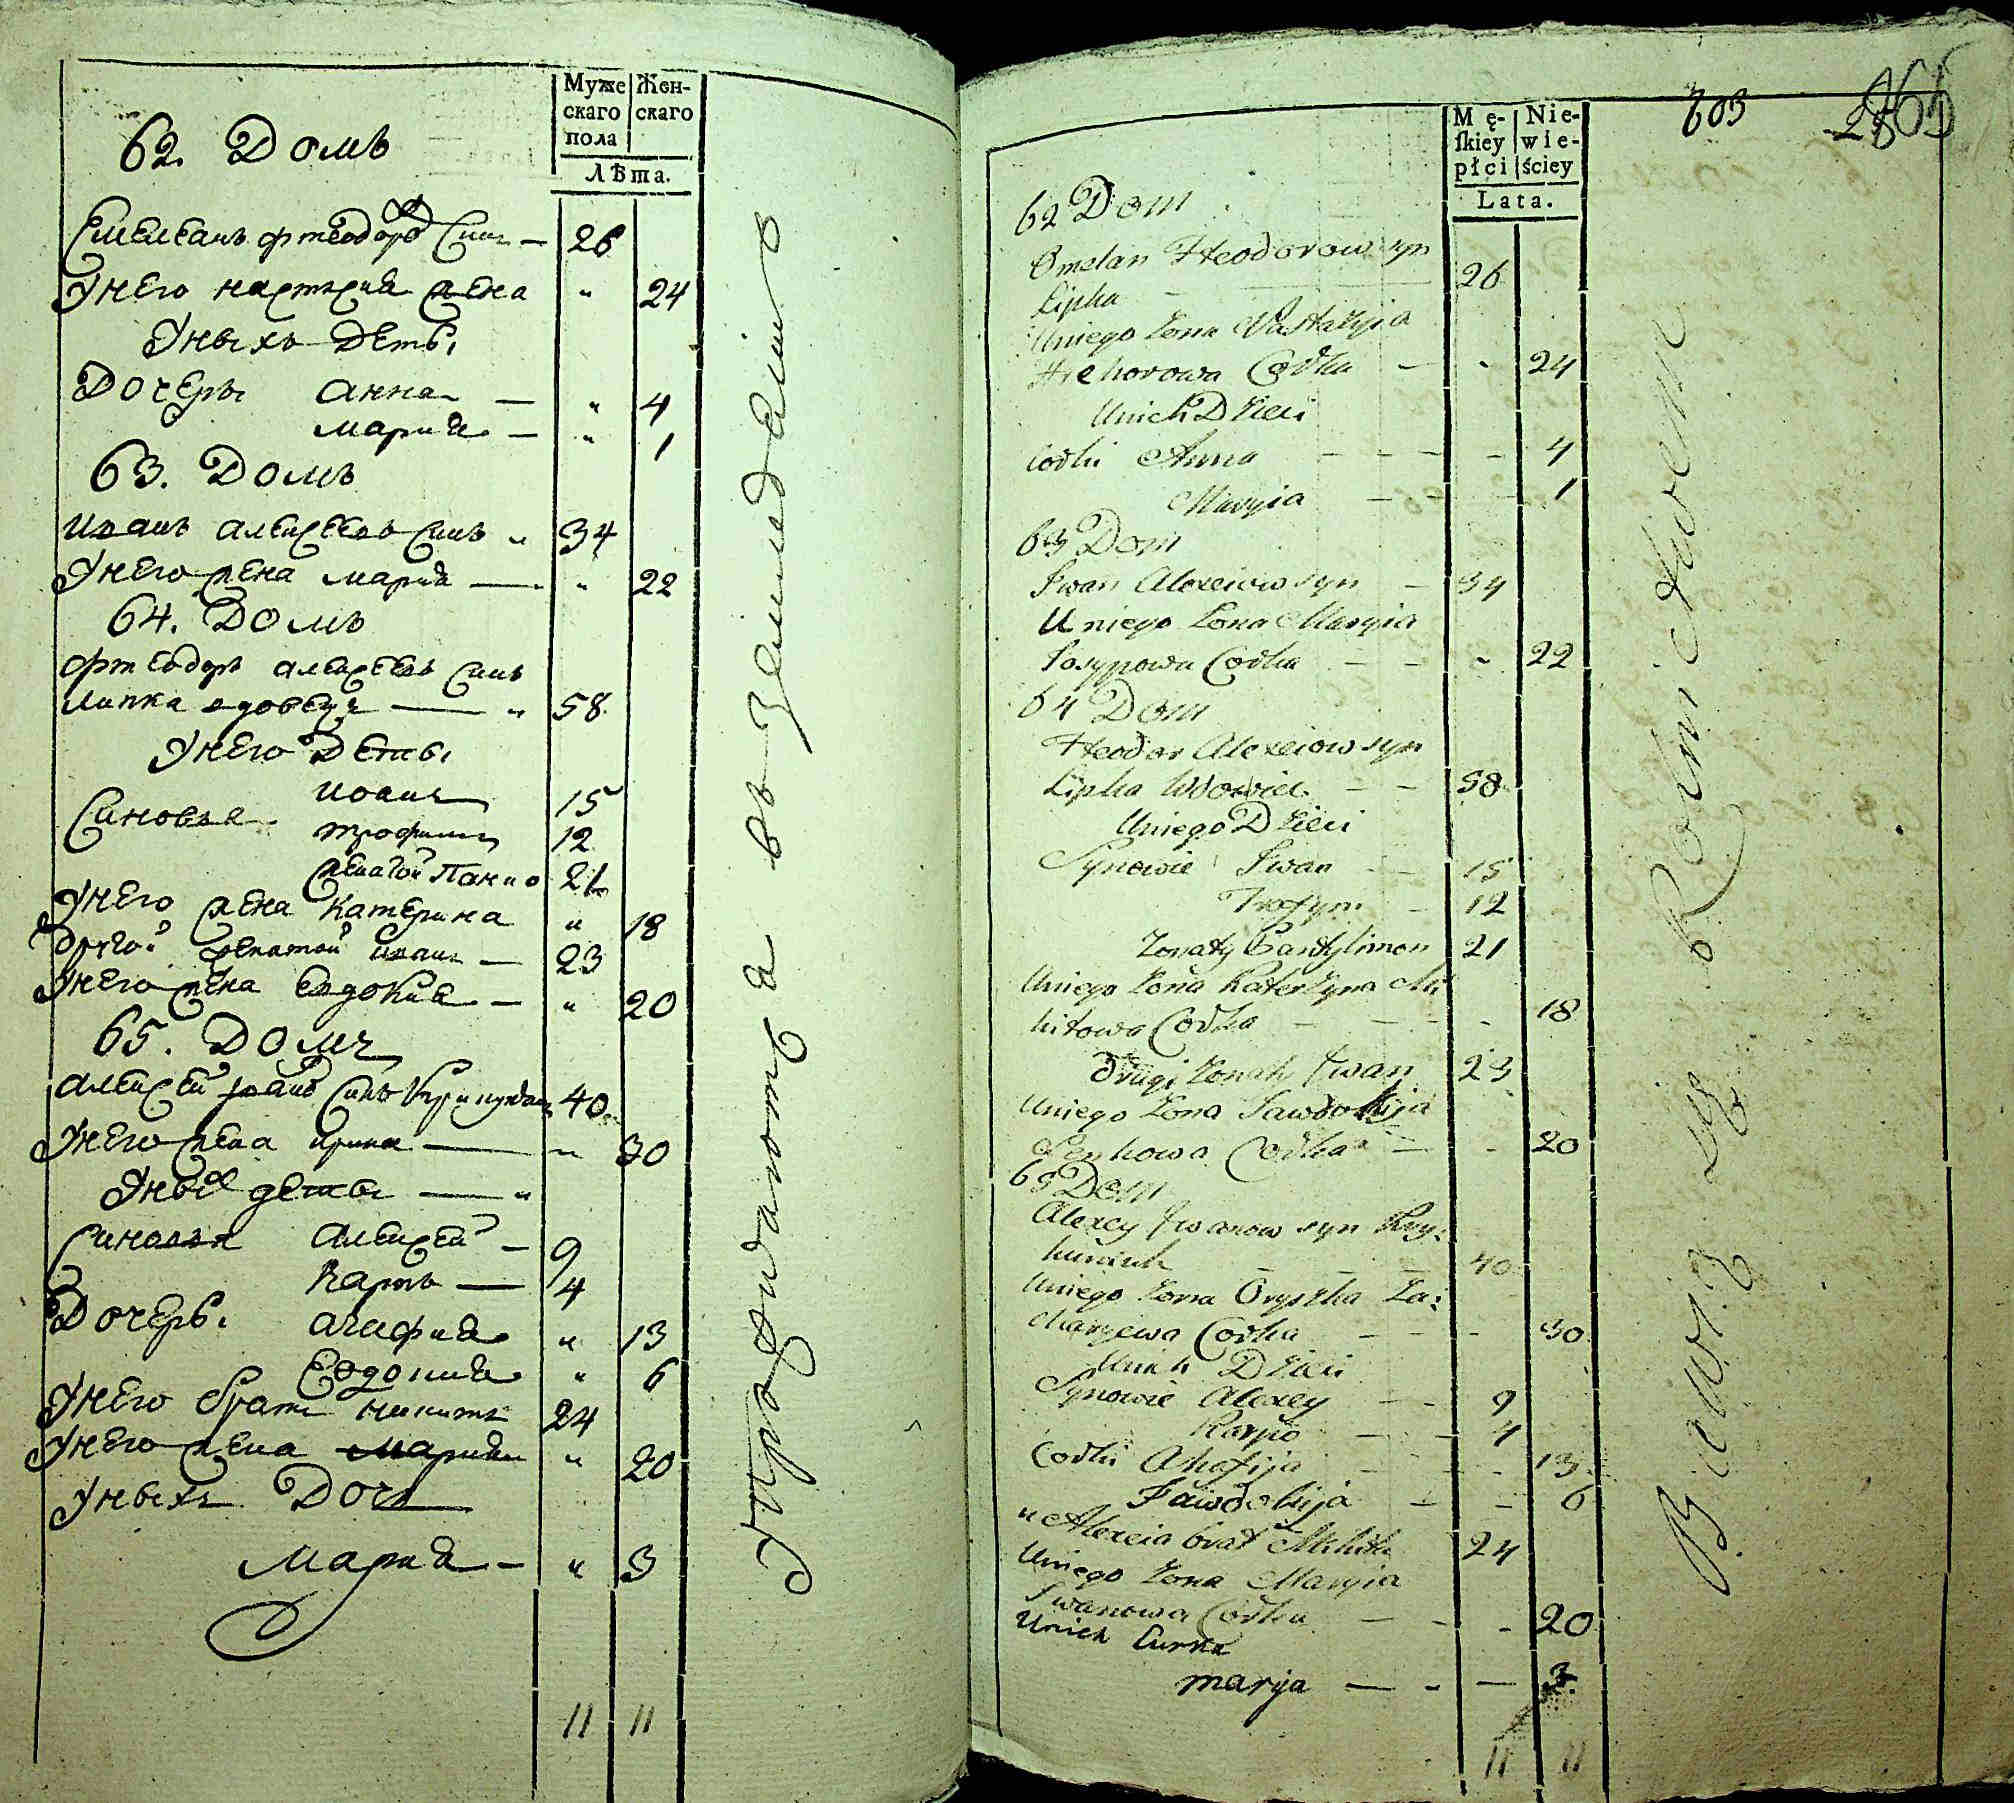 Муже
скаго
пола
Жен-
скаго
Лѣта.
62. Домъ
Емелеанъ фтеодоро Синъ — 26
У него настасия жена " 24
У ныхъ дети
Дочеры Анна — " 4
Мариа — " 1
63. Домъ
Иванъ алексеевъ синъ " 34
У него жена мариа — " 22
64. Домъ
Фтеодоръ алексеевъ синъ
Липка вдовецъ — " 58
У него дети
Синовья Иванъ 15
трофимъ 12
женатой Панко 21
У него жена Катерина " 18
другой женатой Иванъ — 23
У него жена Евдокия — " 20
65. Домъ
Алексей Иванъ Синъ 40
У него жена ирина — " 30
У ные дети — "
Синовья Алексей — 9
Карпъ — 4
Дочери Агафиа " 13
Евдокиа " 6
У него братъ никита 24
У него жена Мариа " 20
У ныхъ Доч
Мариа — " 3
11 11
Упражнаютъ а въ земледелию
Mę-
ſkiey
płci
Nie-
wie-
ściey
Lata.
303
62 Dom
Omelan Fteodorow syn
Lipka — 26
U niego żona Nastazyia
Hrehorowa Codka — - 24
U nich Dzieci
Codki Anna - - - - 4
Maryia - - - 1
63 Dom
Iwan Alexeiow syn - 34
U niego żona Maryia
Iosypowa Codka - - - 22
64 Dom
Fteodor Alexeiow syn
Lipka Wdowiec - - 58
U niego Dzieci
Synowie Iwan - - 15
Trofym - 12
Żonaty Pantylimon 21
U niego żona Katerżyna Mi
kitowa Codka - - - - 18
Drugi żonaty Iwan 23
U niego żona Iawdokija
Senkowa Codka - - 20
65 Dom
Alexey Iwanow syn Kry:
- - - 40
U niego żona Oryszka Za:
charżewa Codka - - - 30
U nich Dzieci
Synowie Alexey - - 9
Karpo - - - 4
Codki Ahafija - - - 13
Iawdokija - - 6
u Alexeia brat Mikita 24
U niego żona Maryia
Iwanowa Codka - - - 20
U nich Curka
marya — - — 3.
11 11
Bawią się Rolnictwem